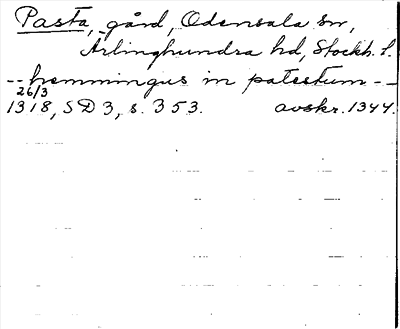 Pasta, gård, Odensala sn,
Ärlinghundra hd, Stockh. l.
-- hemmingus in patestum --
26/3
1318, SD 3, s. 353. avskr. 1344.